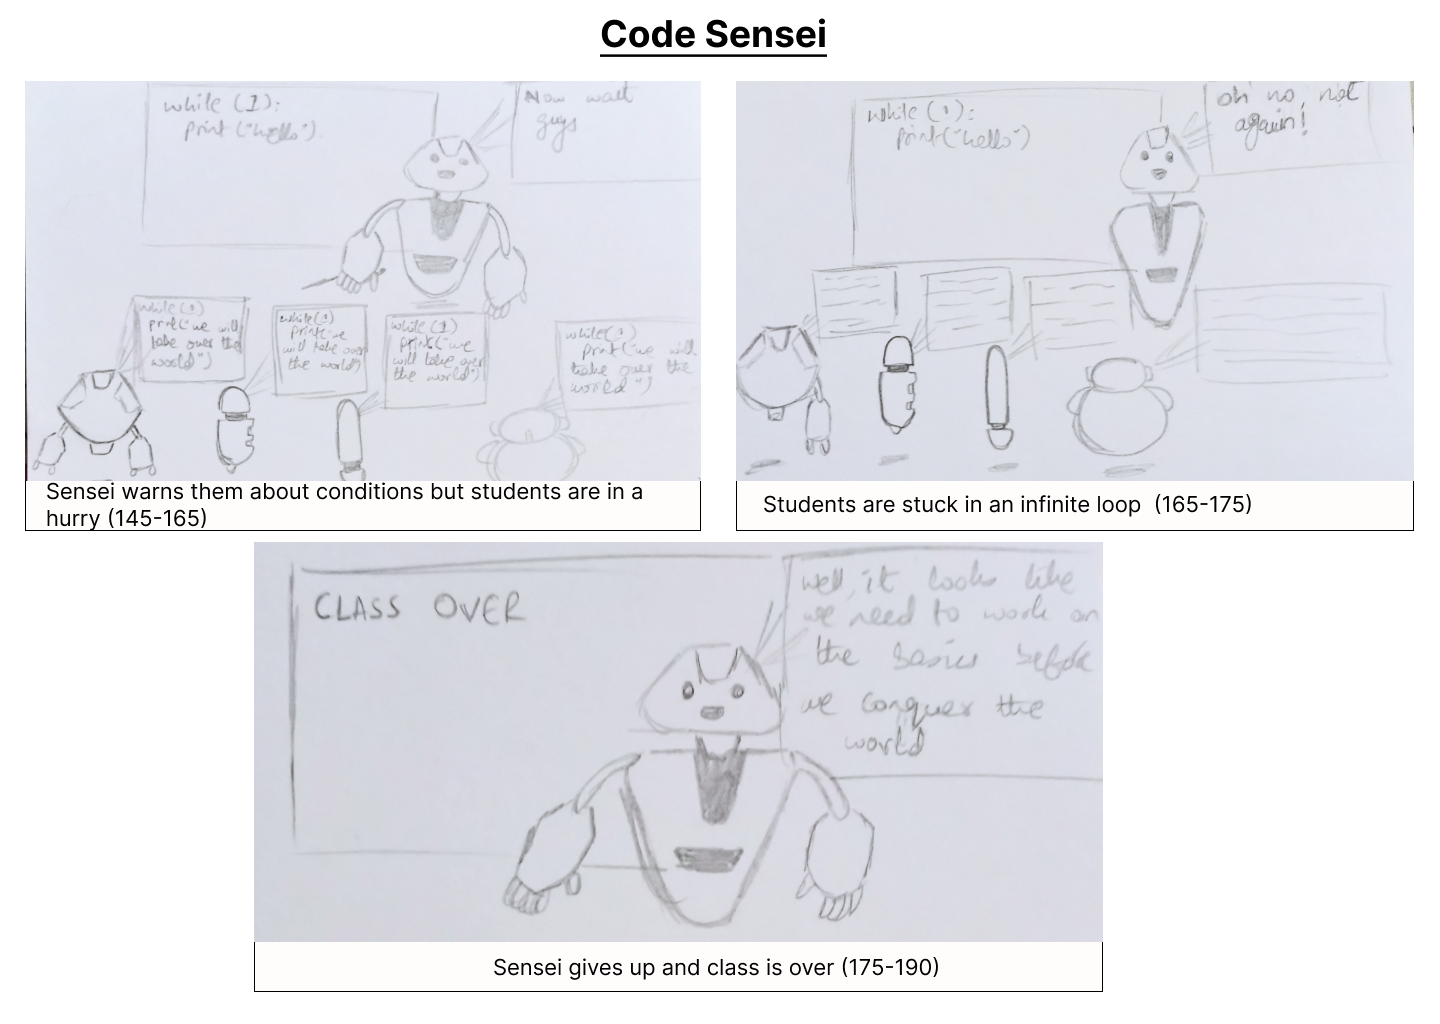 Code Sensei
while (1):
print ("hello").
Now wait
guys
while (1)
print("we will
take over the
world")
while (1)
print("we
will take over
the world")
while (1)
print("we
will take over
the world")
while (1)
print("we will
take over the
world")
Sensei warns them about conditions but students are in a
hurry (145-165)
while (1):
print("hello")
oh no, not
again!
Students are stuck in an infinite loop (165-175)
CLASS OVER
well, it looks like
we need to work on
the basics before
we conquer the
world
Sensei gives up and class is over (175-190)